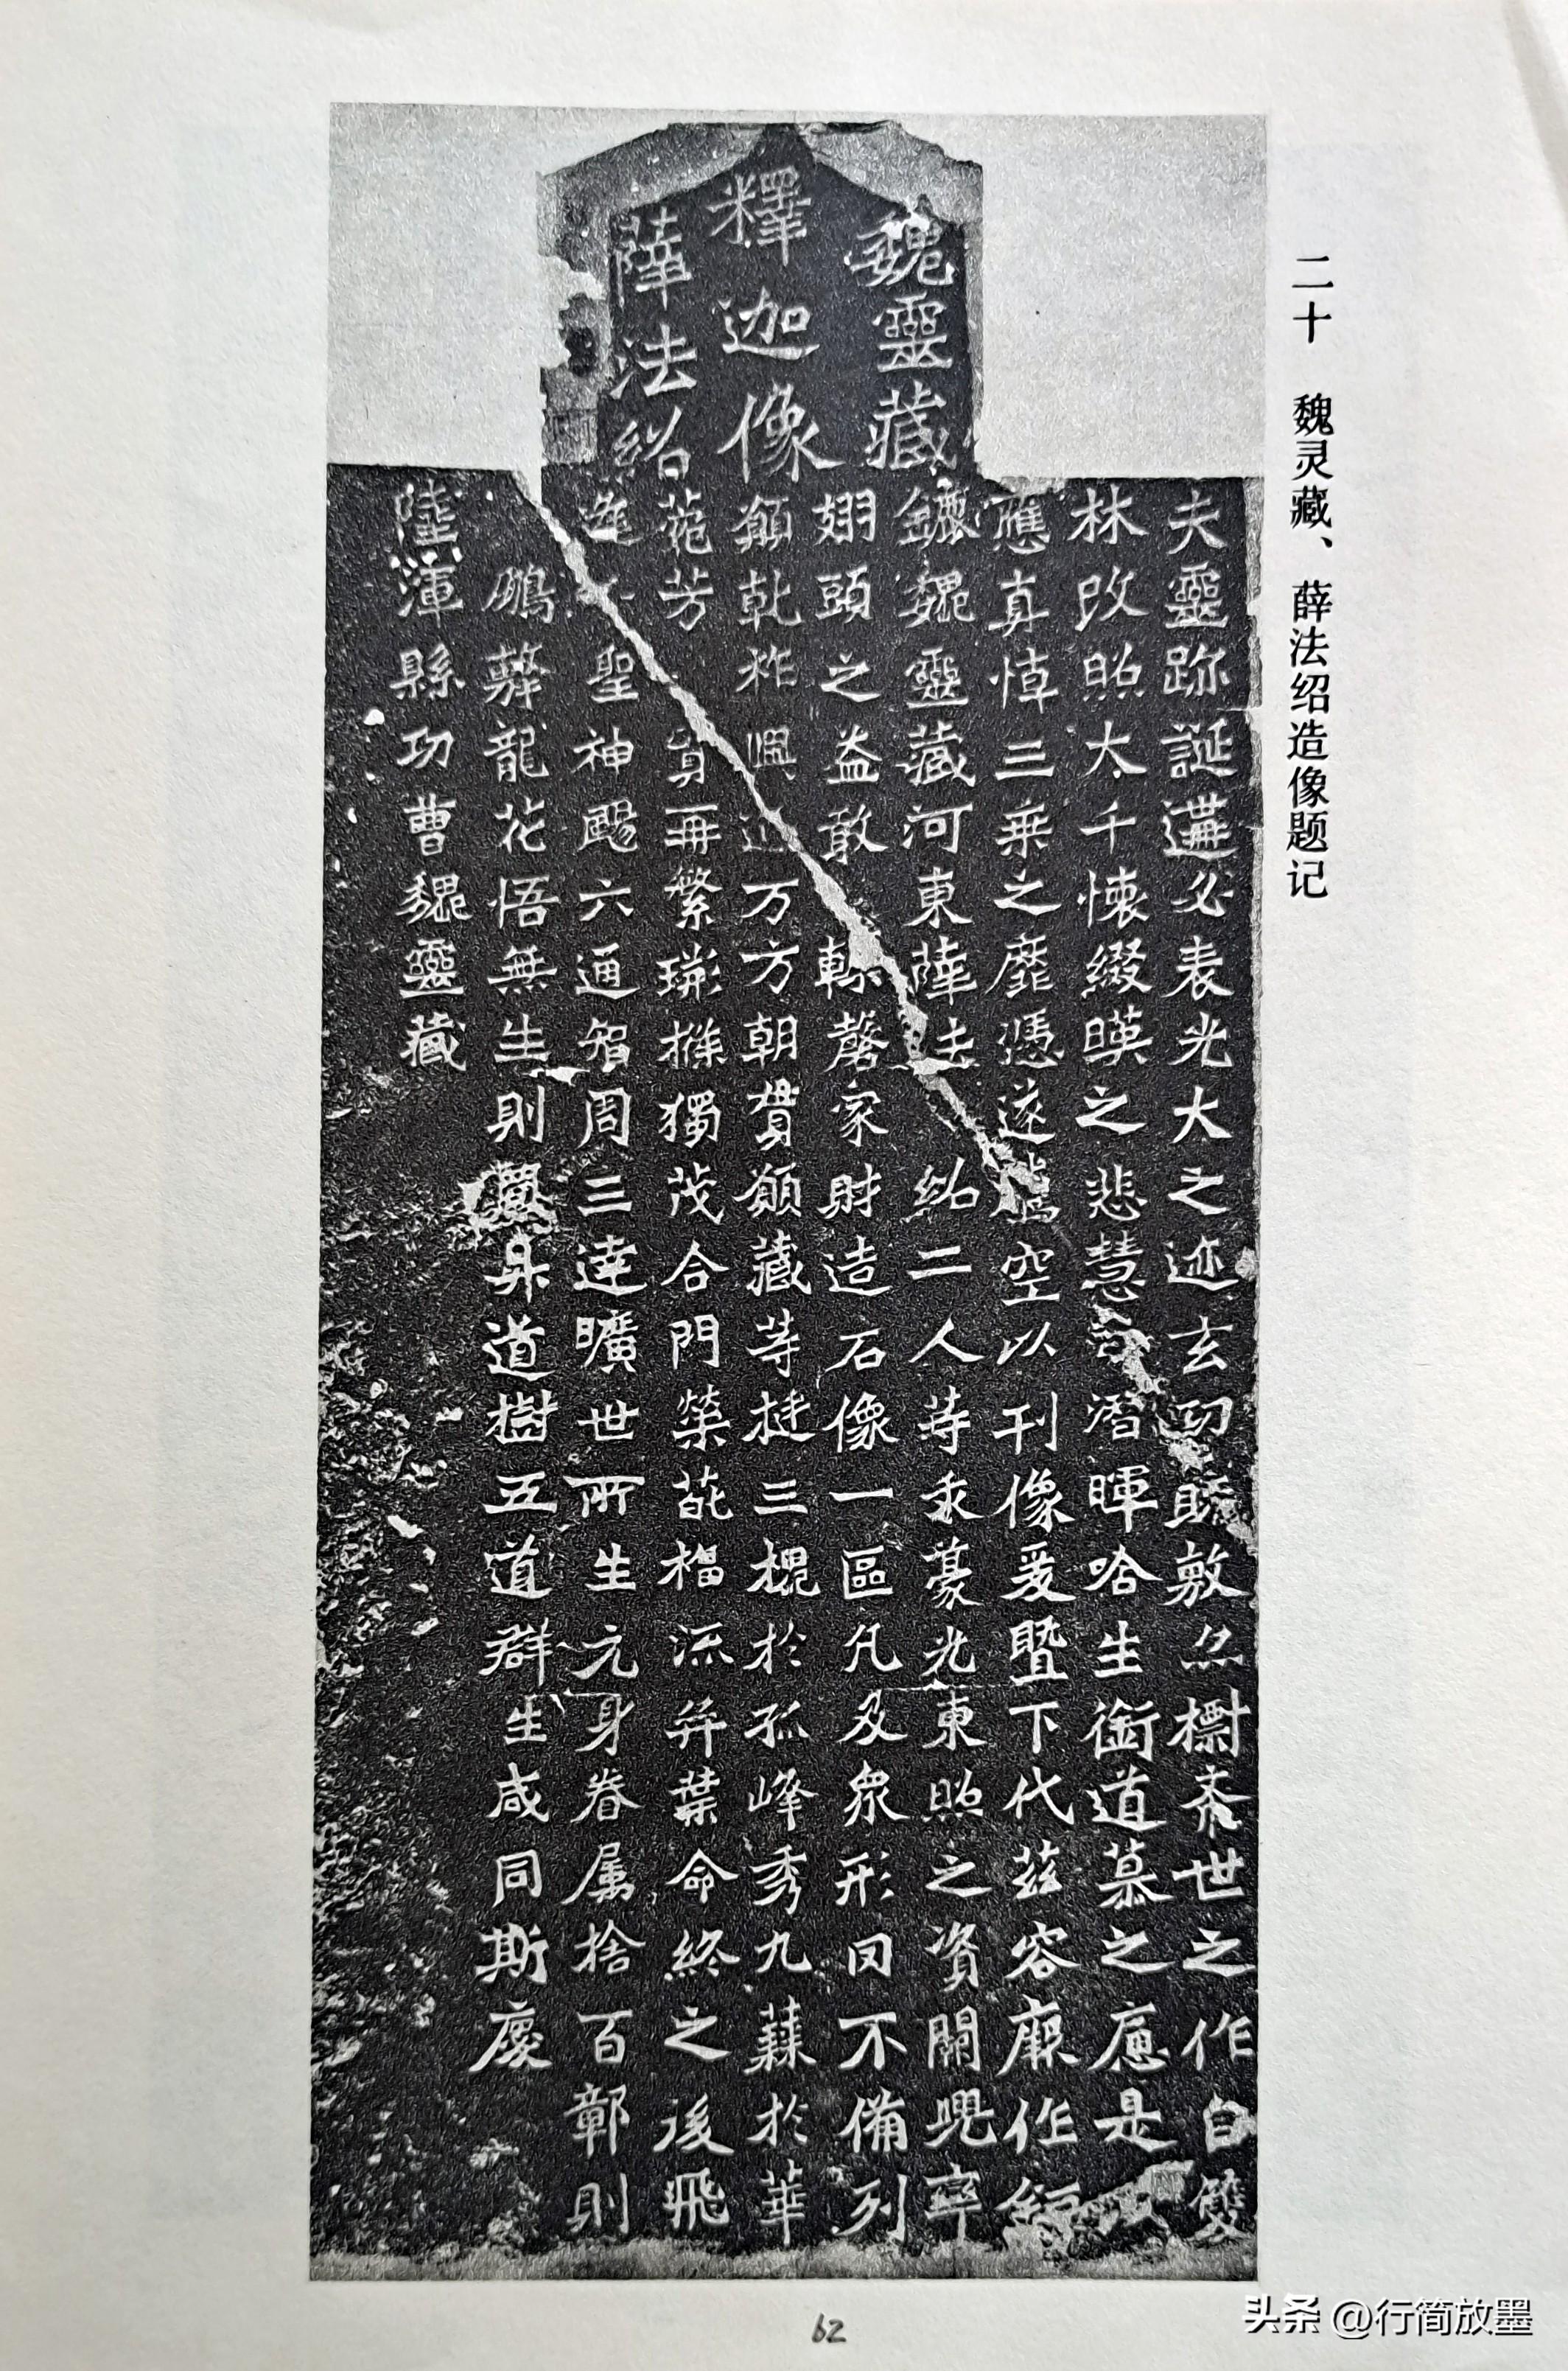 二十 魏灵藏、薛法绍造像题记
魏靈藏
釋迦像
薛法紹
夫靈跡誕遘必表光大之迹玄功既敷亦標希世之作自雙
林改照大千懷綴暎之悲慧日潛暉唅生銜道慕之應是
應真悼三乘之靡憑遂騰空以刊像爰暨下代茲容厥作鉅
鏕魏靈藏河東薛法紹二人等求豪光東照之資闕兜率
翅頭之益敢輒罄家財造石像一區凡及衆形罔不備列
願乾祚興延万方朝貢願藏等挺三槐於孤峰秀九蕀於華
菀芳實再繁荊條獨茂合門榮葩福流弈葉命終之後飛
逢聖神颺六通智周三達曠世所生元身眷屬捨百鄣則
鵬擊龍花悟無生則昇道樹五道群生咸同斯慶
陸渾縣功曹魏靈藏
62
头条 @行简放墨